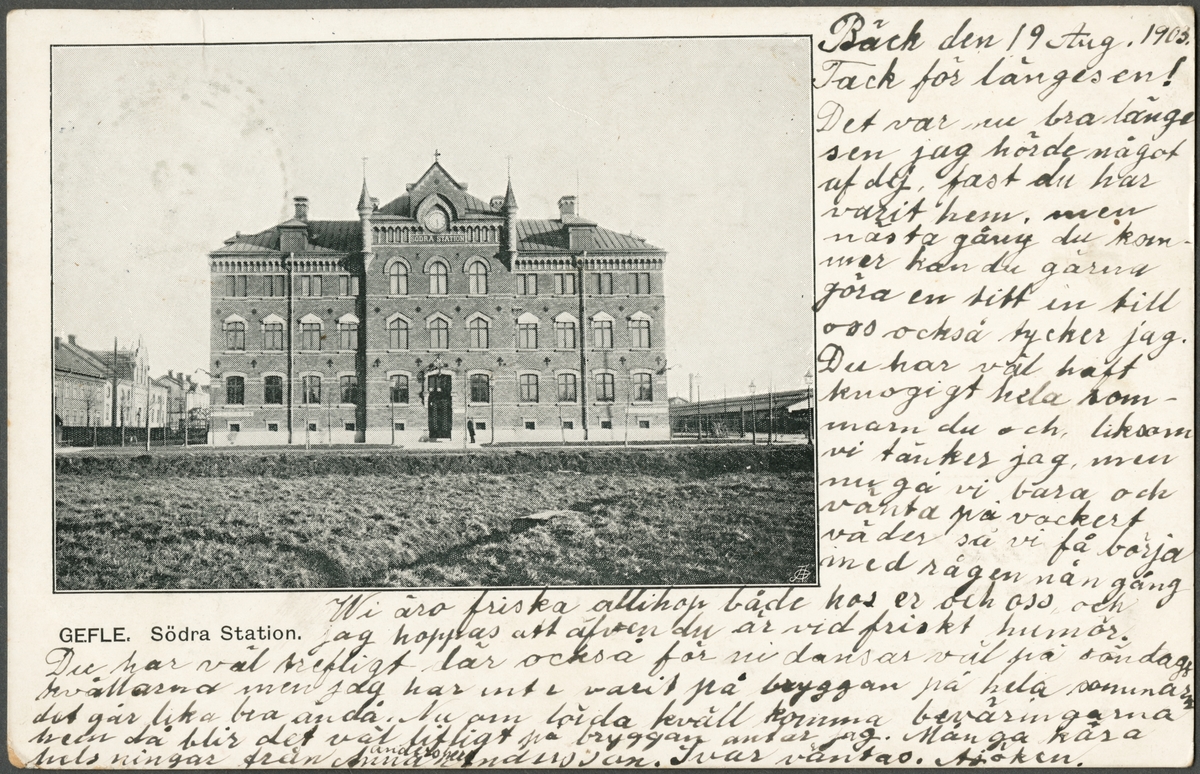 Bäck den 19 Aug. 1903.
Tack för längesen!
Det var nu bra länge
sen jag hörde något
af dig, fast du har
varit hem. men
nästa gång du kom-
mer kan du gärna
göra en titt in till
oss också tycker jag.
Du har väl haft
knogigt hela som-
marn du och, liksom
vi tänker jag, men
nu gå vi bara och
vänta på vackert
väder så vi få börja
med rågen nån gång
SÖDRA STATION
GEFLE. Södra Station.
Wi äro friska allihop både hos er och oss, och
jag hoppas att äfven du är vid friskt humör.
Du har väl trefligt där också för ni dansar väl på söndags
kvällarna men jag har inte varit på bryggan på hela sommarn
det går lika bra ändå. Nu om lörda kväll komma beväringarna
hem då blir det väl lifligt på bryggan antar jag. Många kära
helsningar från Anna Andersson. Svar väntas.